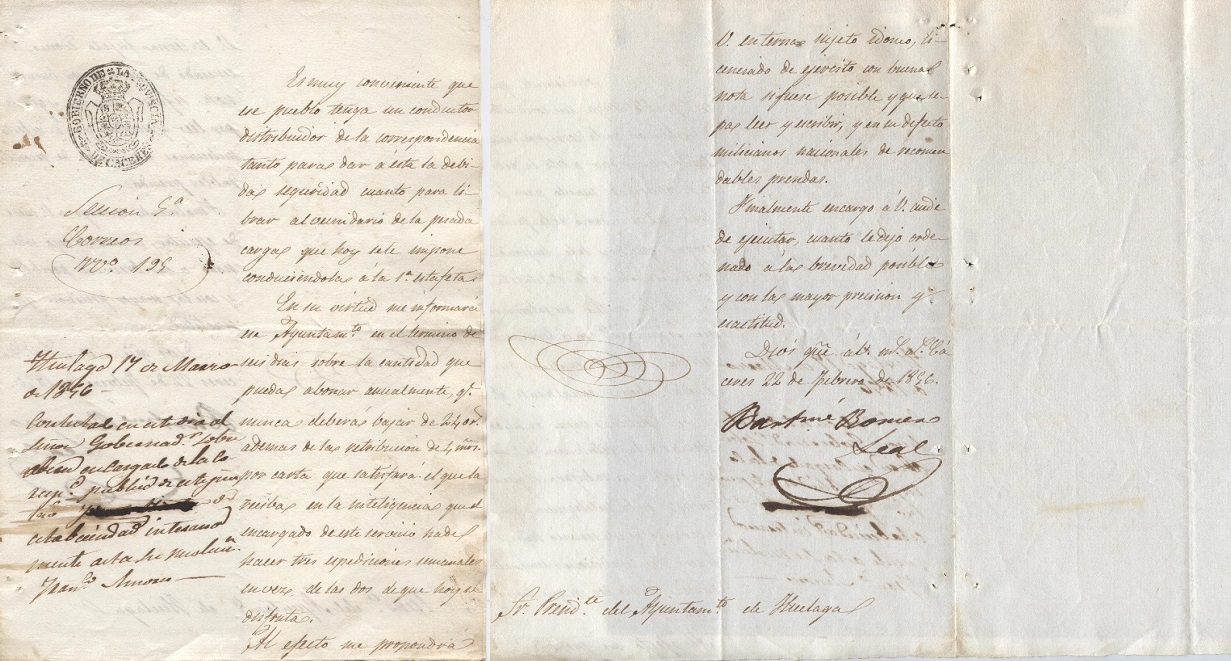 GOBIERNO DE LA PROVINCIA DE CACERES
Seccion 5ª
Correos
Nº 195
Es muy conveniente que
ese pueblo tenga un conductor
distribuidor de la correspondencia
tanto paras dar a esta la debi
das seguridad cuanto para li
brar al vecindario de la pesada
cargas que hoy se le impone
conduciendolas a la 1ª estafeta.
En su virtud me informará
ese Ayuntamto en el termino de
seis dias sobre la cantidad que
puedas abonar anualmente, q.
nunca deberás bajar de 240 rs.
ademas de las retribucion de 4 mrs.
por carta que satisfará el que la
recibas en la inteligencias que el
encargado de este servicio ha de
hacer tres espediciones semanales
en vez de las dos de que hoy se
disfruta.
Al efecto me propondrás
Huelaga 17 de Marzo
de 1856
Contestado en este dia al
Señor Gobernador sobre
el encargado de la Co
publica de este
esta vecindad interina
mente
Franco
V. en terna sujeto idoneo, li
cenciado de ejercito con buenas
nota si fuese posible y que se
pas leer y escribir, y en su defecto
milicianos nacionales de recomen
dables prendas.
Finalmente encargo á V. cuide
de ejecutar, cuanto le dejo orde
nado a las brevedad posible
y con las mayor precision y
esactitud.
Dios gue á V. ms. as. Cá
ceres 22 de Febrero de 1856.
Bartmé Romero
Leal
Sr. Presidte del Ayuntamto de Huelaga